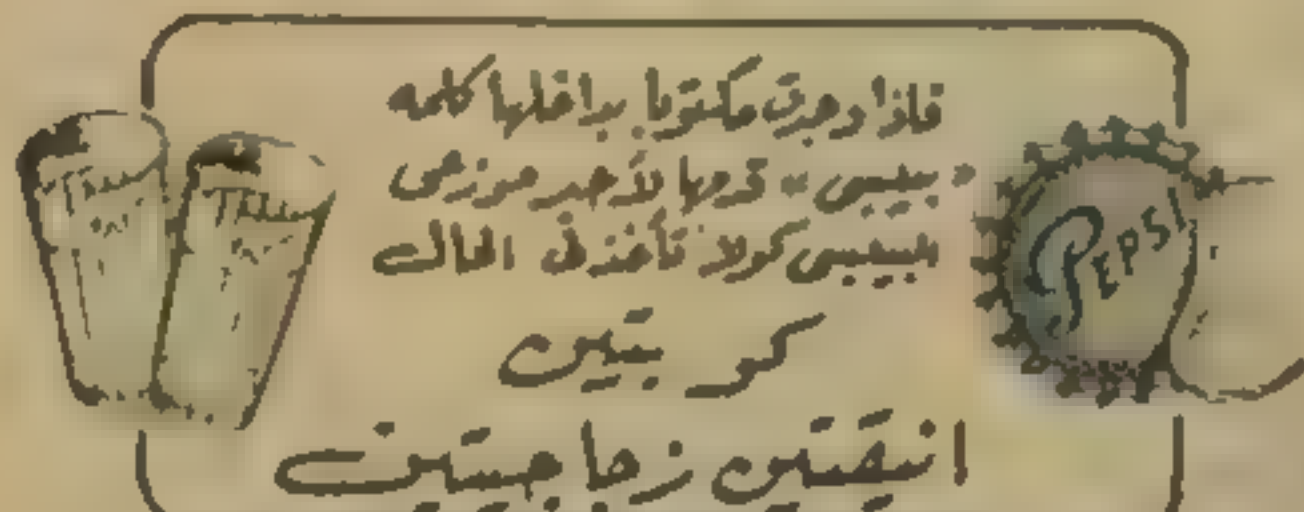 فاذا وجدت مكتوبا بداخلها كلمه
«بيبسى» قدمها لأحد موزعى
البيبسى كولا تأخذ فى الحال
كوبتين
انيقتين زجاجيتين
PEPSI